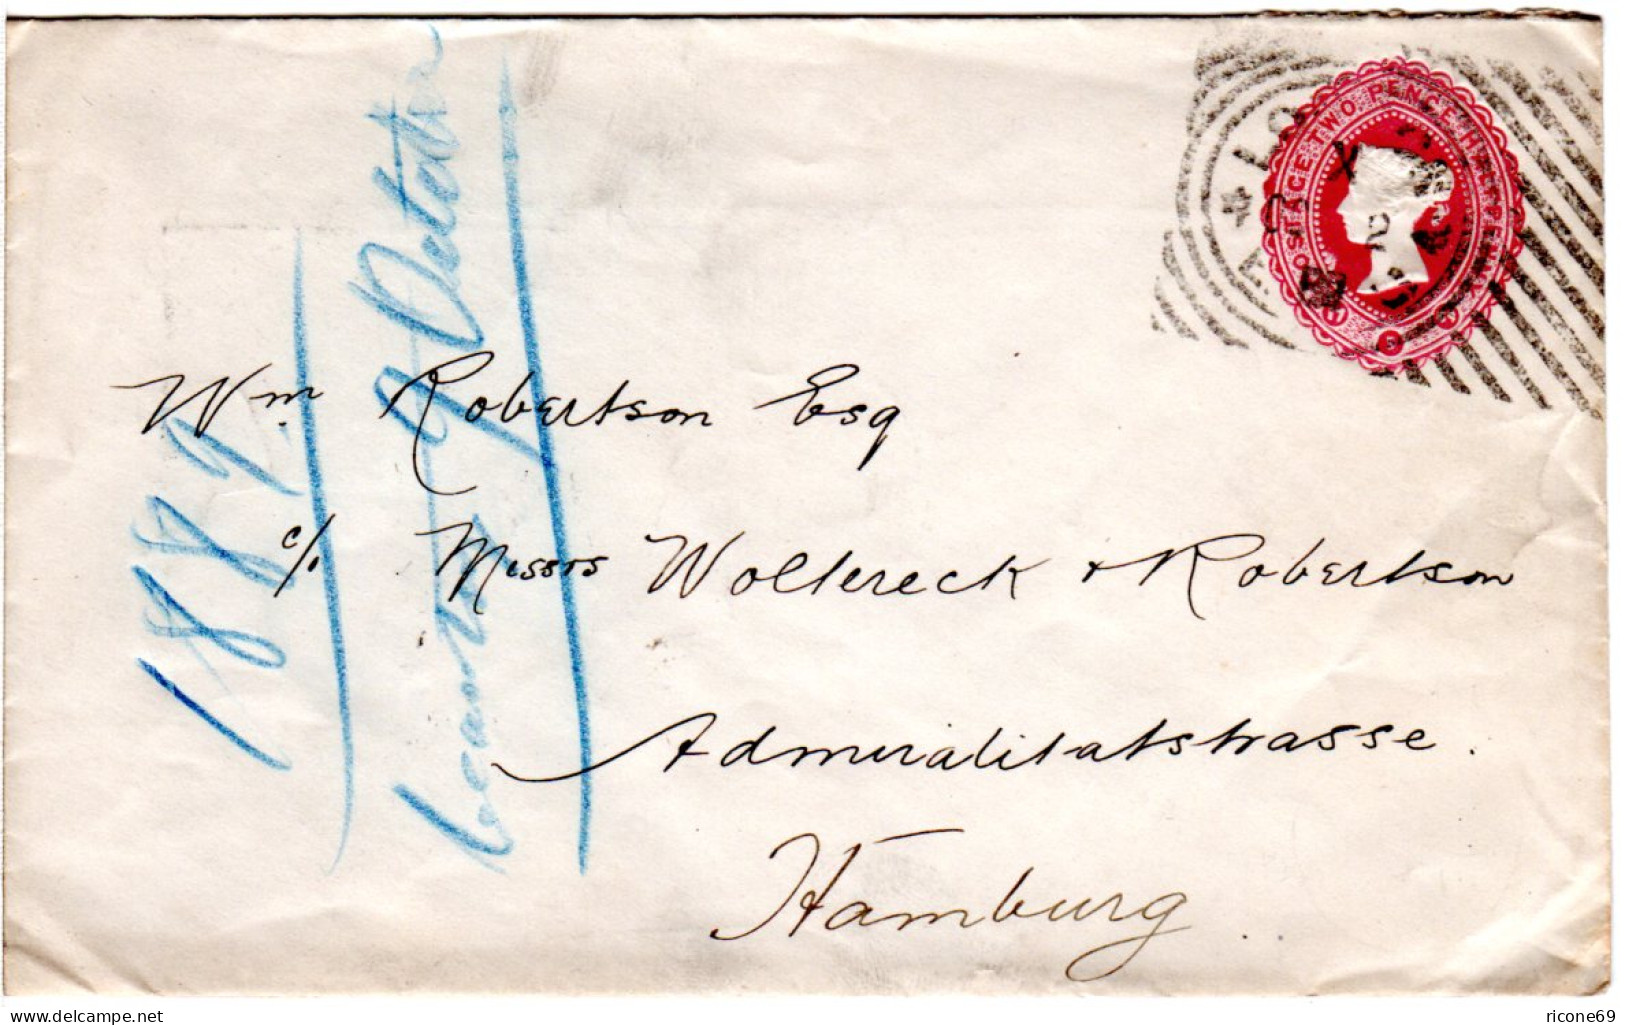 POSTAGE TWO PENCE HALFPENNY
Wm Robertson Esq
c/o Messrs Woltereck & Robertson
Admiralitatstrasse.
Hamburg
1889
beantw 9 October
delcampe.net
ricone69